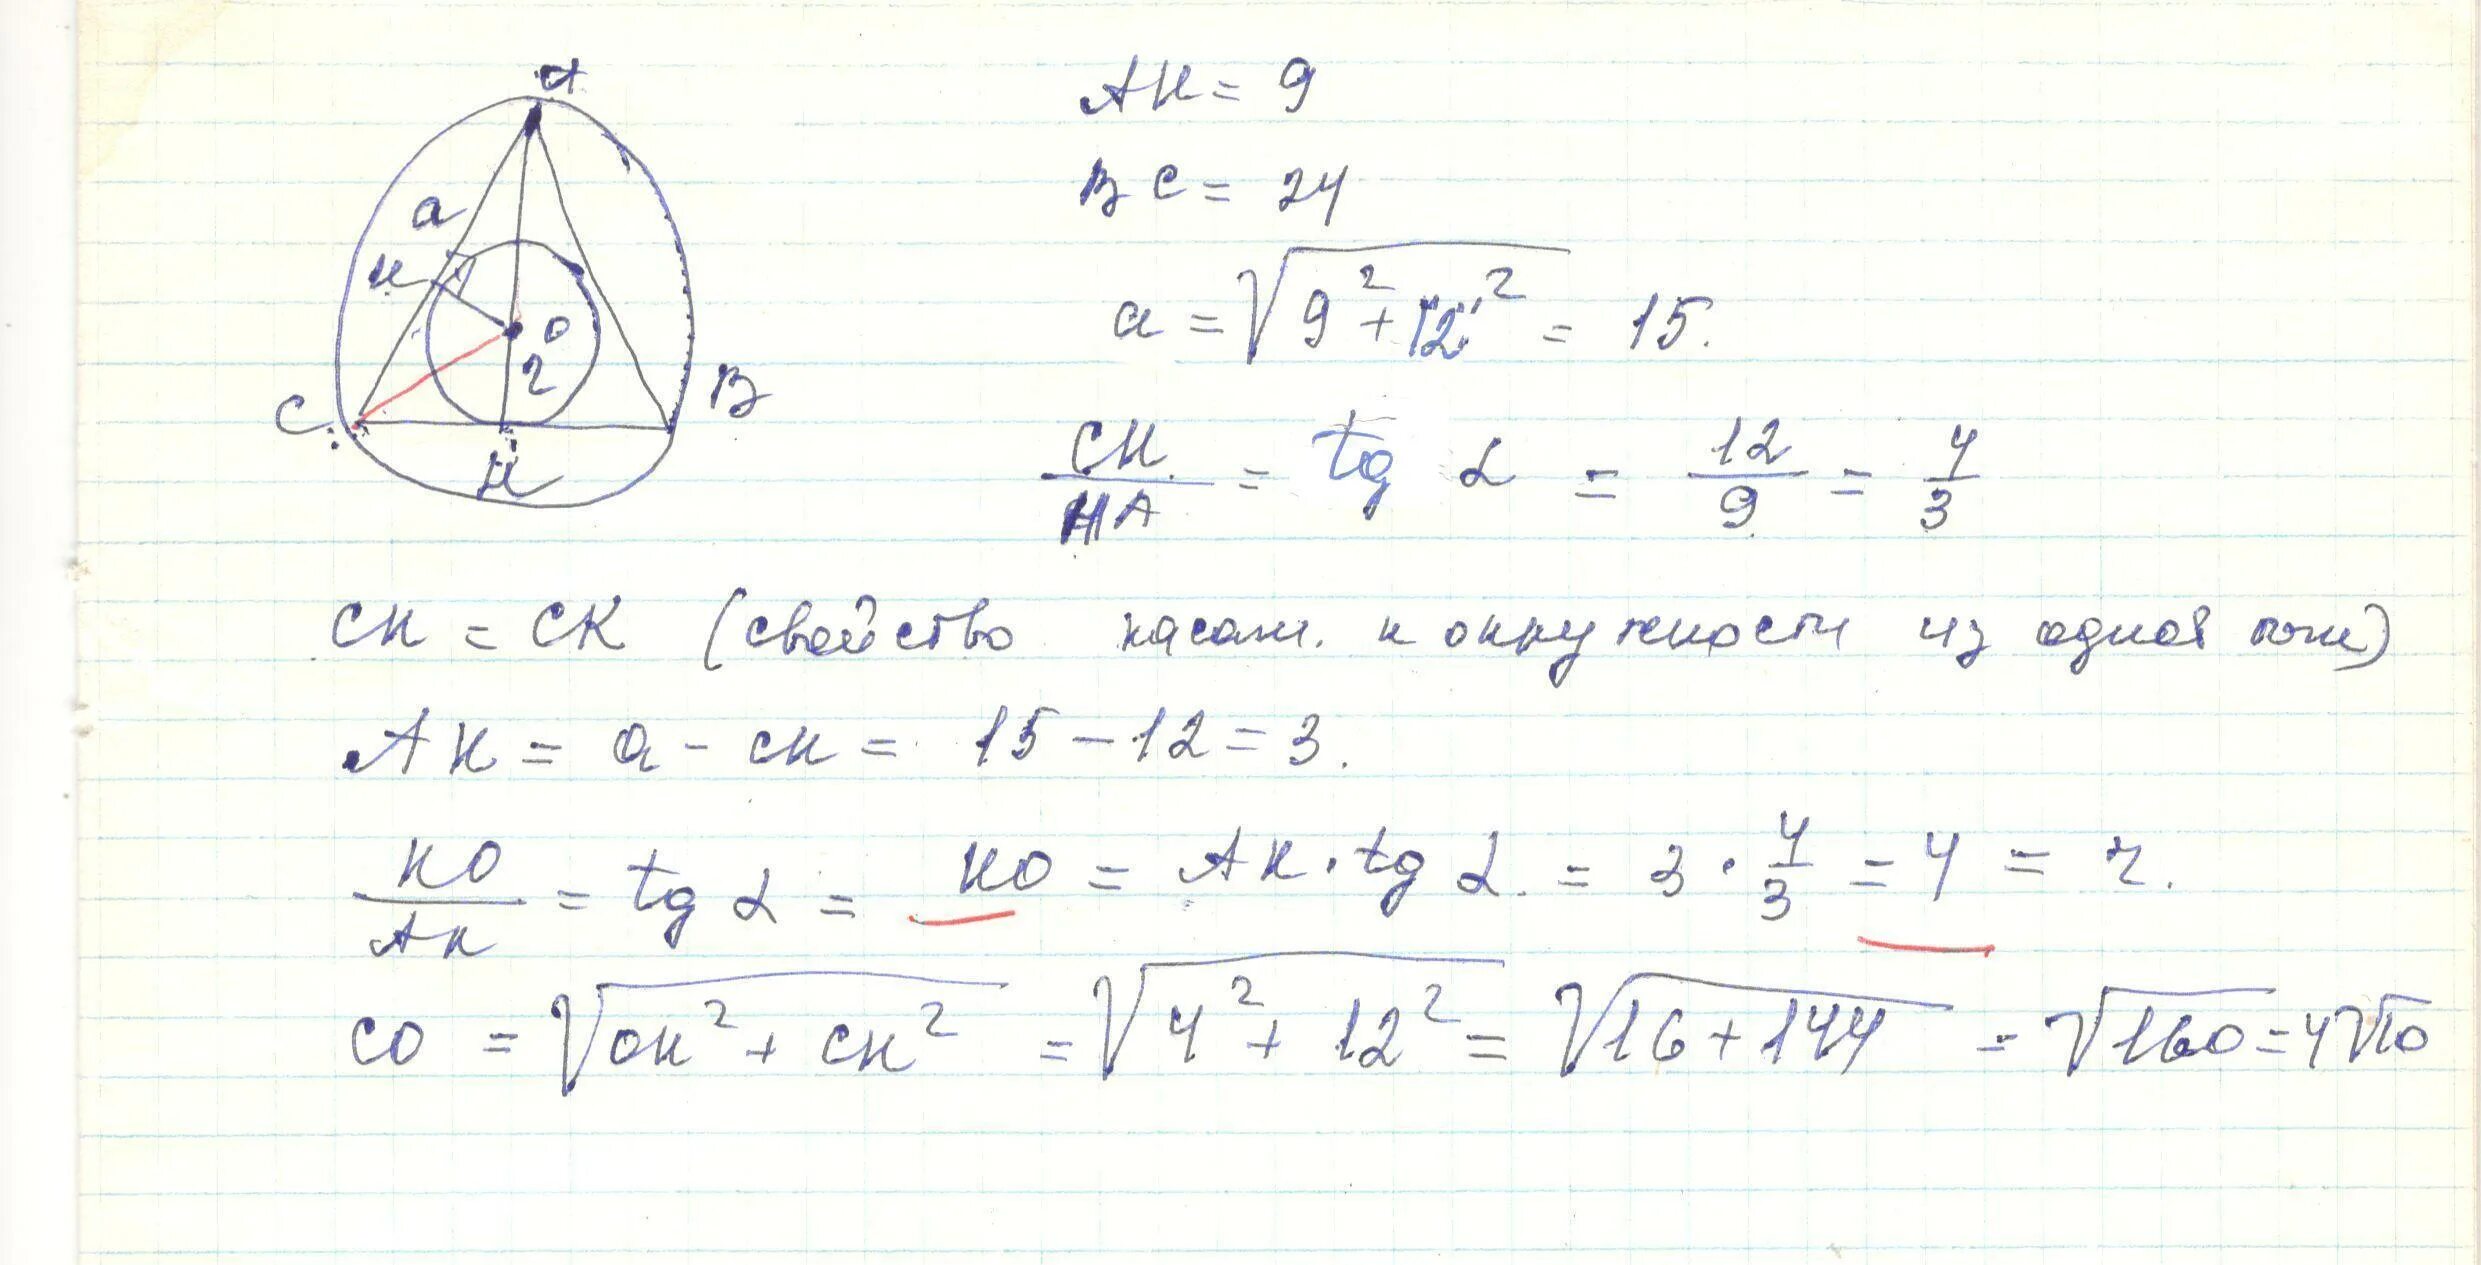 A
a
к
о
r
C
B
H
AH = 9
BC = 24
a = √(9² + 12²) = 15.
CH/HA = tg α = 12/9 = 4/3
CH = CK (свойство касат. к окружности из одной точки)
AK = a - CH = 15 - 12 = 3.
KO/AK = tg α = KO = AK · tg α. = 3 · 4/3 = 4 = r.
CO = √(OH² + CH²) = √(4² + 12²) = √(16 + 144) = √160 = 4√10